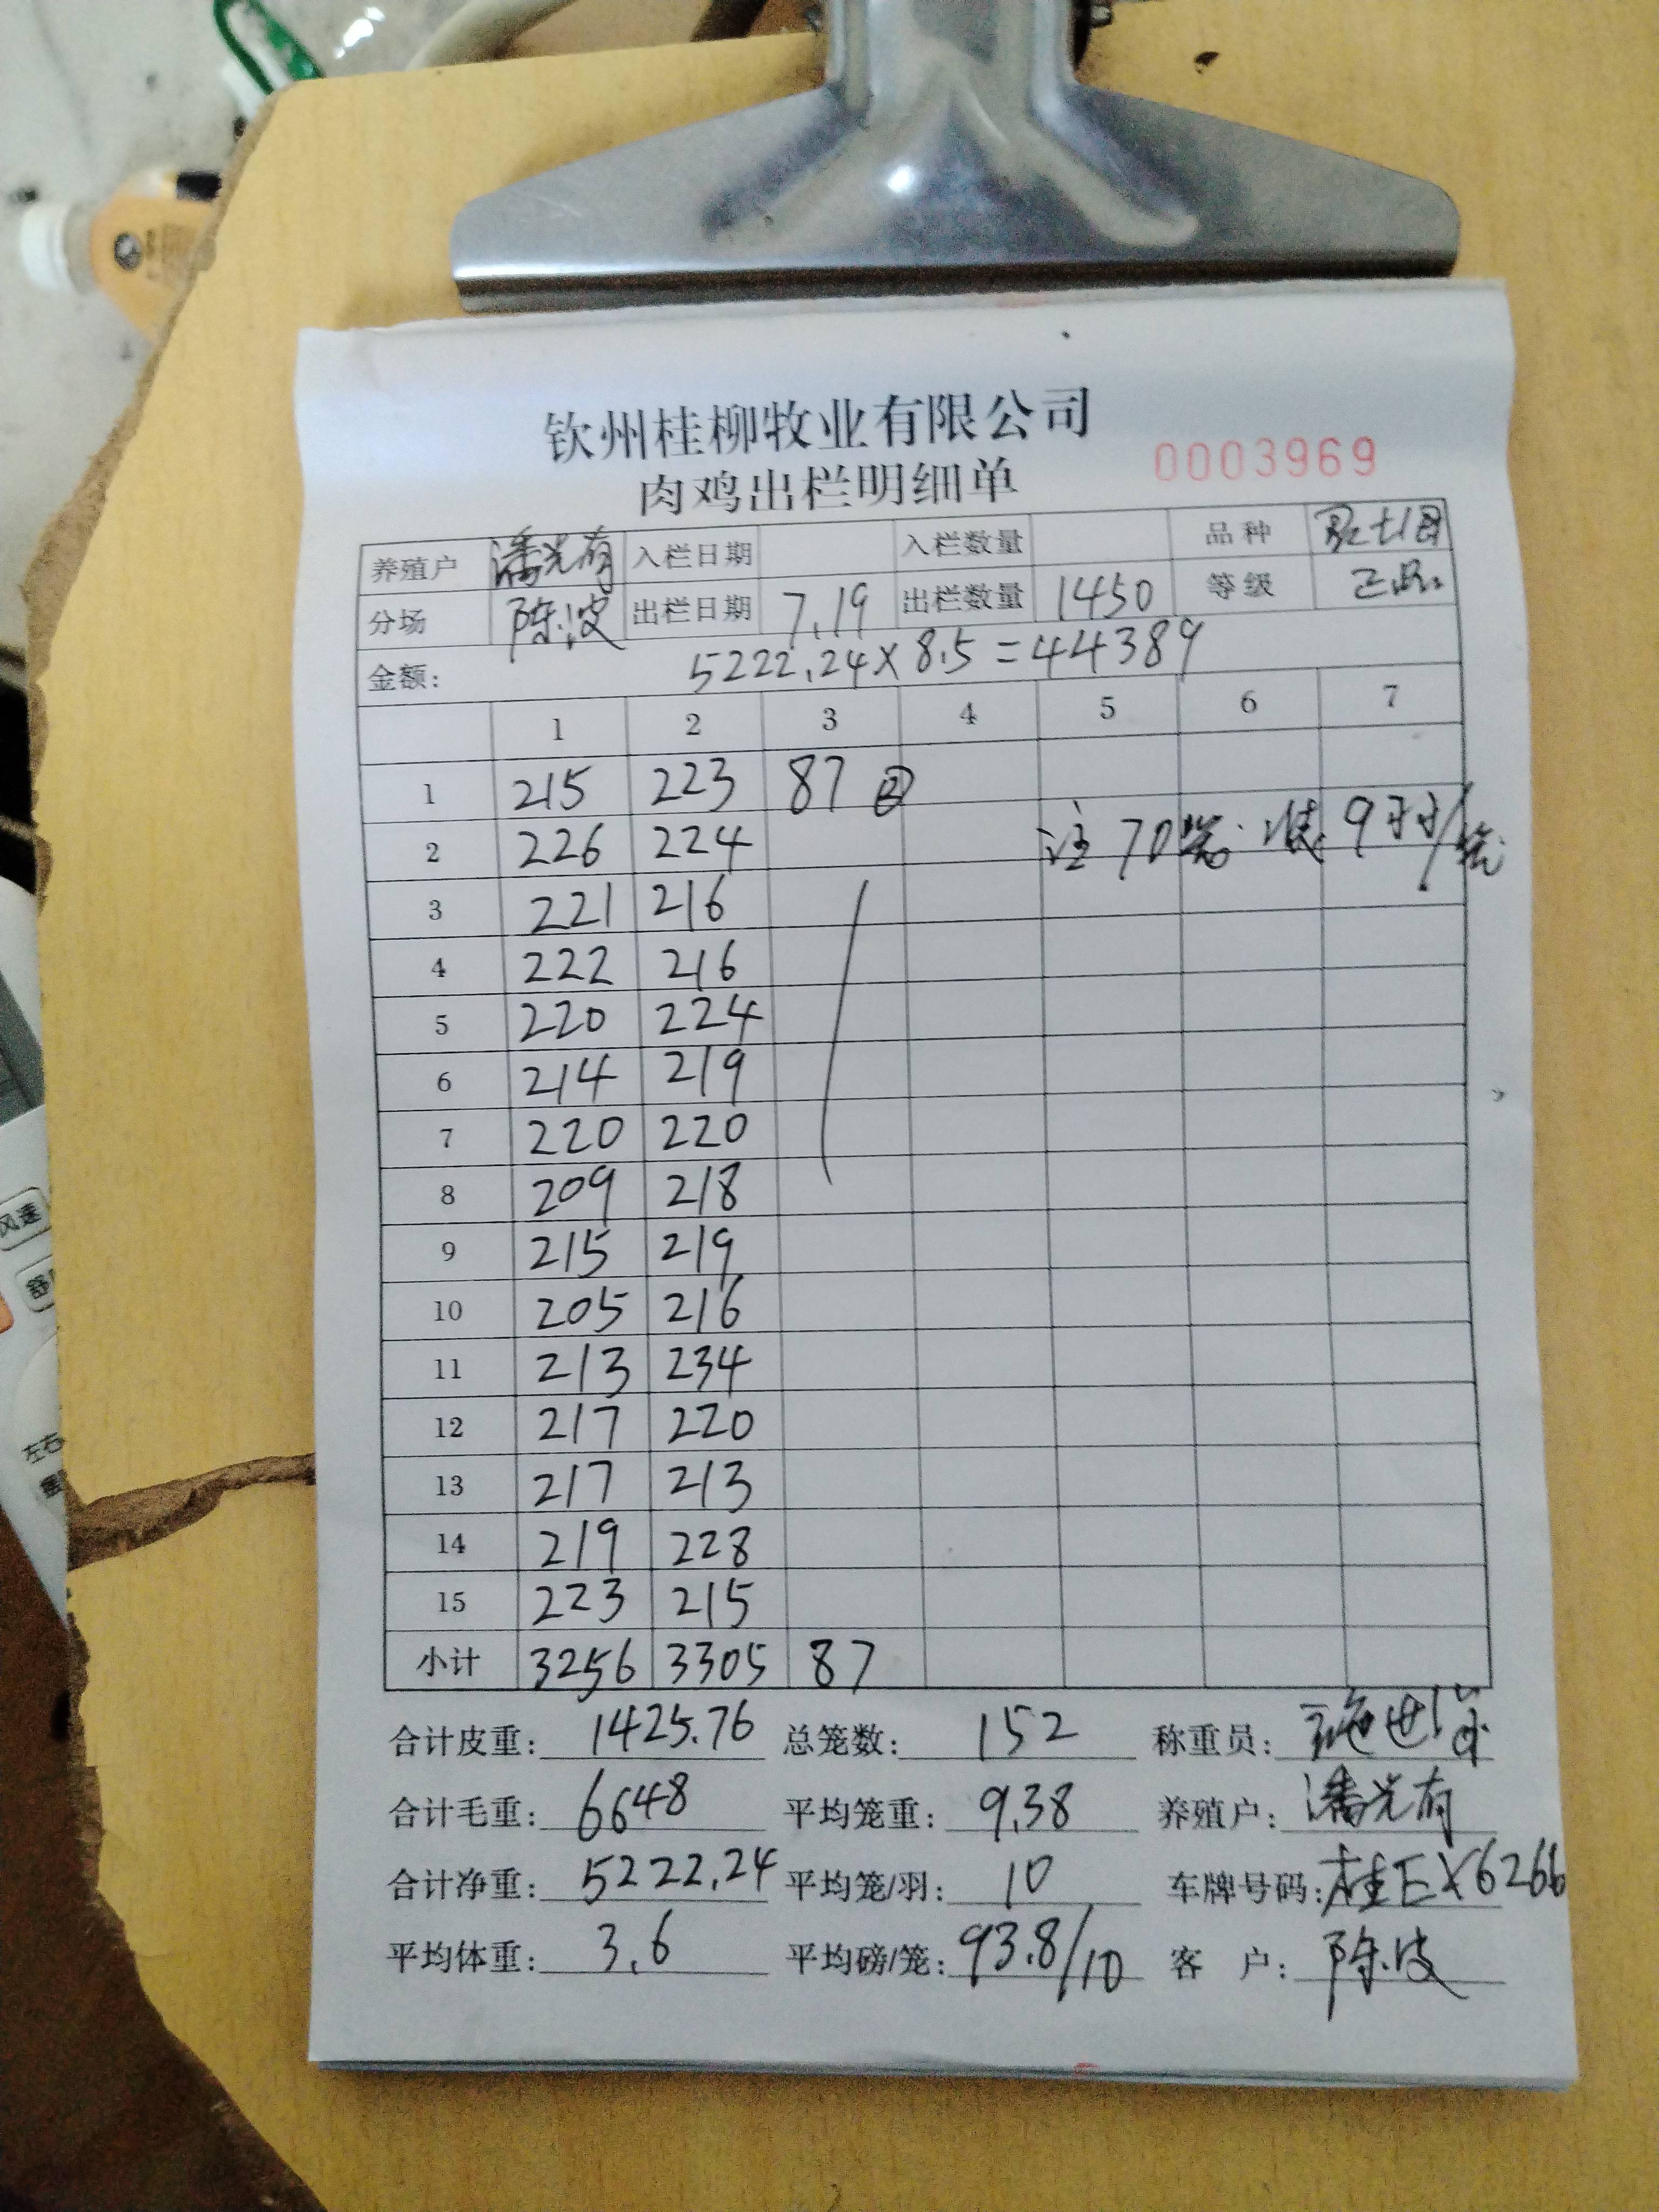 钦州桂柳牧业有限公司
肉鸡出栏明细单
0003969
养殖户 潘光有 入栏日期 入栏数量 品种
分场 陈波 出栏日期 7.19 出栏数量 1450 等级 正品
金额: 5222.24×8.5=44389
1 2 3 4 5 6 7
1 215 223 87 ②
注 70笼 9
2 226 224
3 221 216
4 222 216
5 220 224
6 214 219
7 220 220
8 209 218
9 215 219
10 205 216
11 213 234
12 217 220
13 217 213
14 219 228
15 223 215
小计 3256 3305 87
合计皮重: 1425.76 总笼数: 152 称重员:
合计毛重: 6648 平均笼重: 9.38 养殖户: 潘光有
合计净重: 5222.24 平均笼/羽: 10 车牌号码: 桂EX6266
平均体重: 3.6 平均磅/笼: 93.8/10 客 户: 陈波
风速
左右